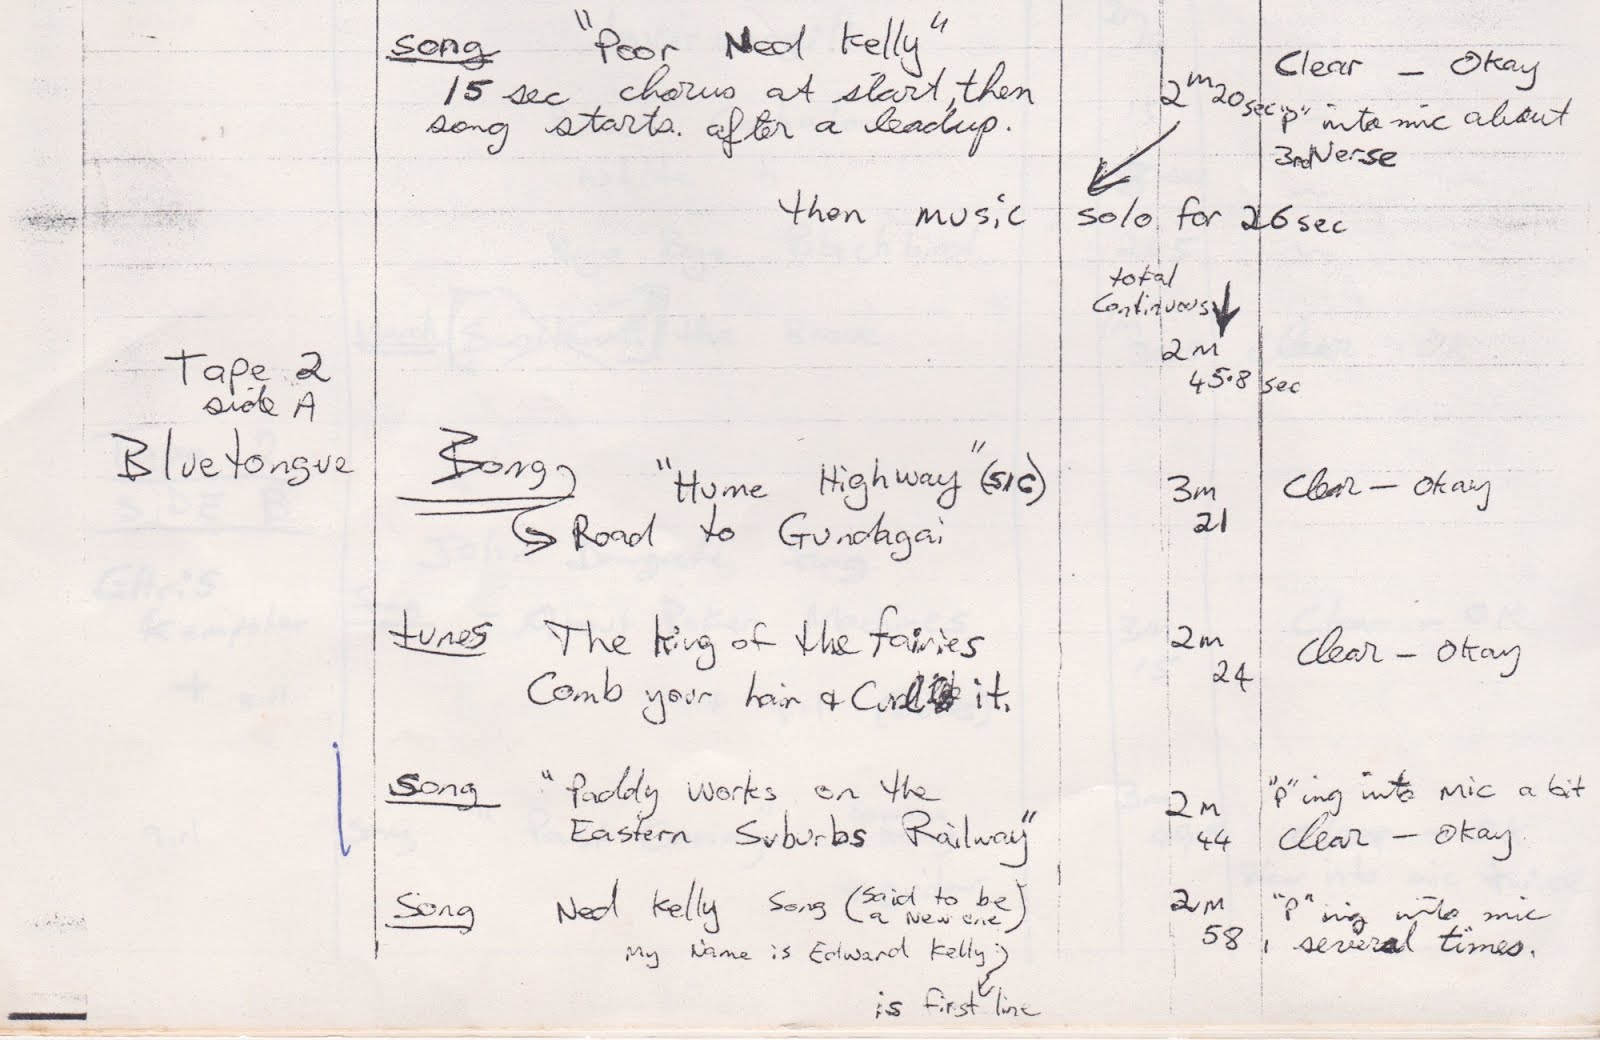 song "Poor Ned Kelly"
15 sec chorus at start, then
song starts. after a leadup.
2m 20sec
Clear – Okay
"P" into mic about
3rd Verse
then music solo for 26 sec
total
Continuous
2m
45.8 sec
Tape 2
side A
Bluetongue
Song "Hume Highway" (sic)
Road to Gundagai
3m
21
Clear – Okay
tunes The King of the fairies
Comb your hair & Curl it.
2m
24
Clear – Okay
song "Paddy works on the
Eastern Suburbs Railway"
2m
44
"P"ing into mic a bit
Clear – Okay
Song Ned Kelly song (said to be
a new one)
My Name is Edward Kelly
is first line
2m
58
"P"ing into mic
several times.